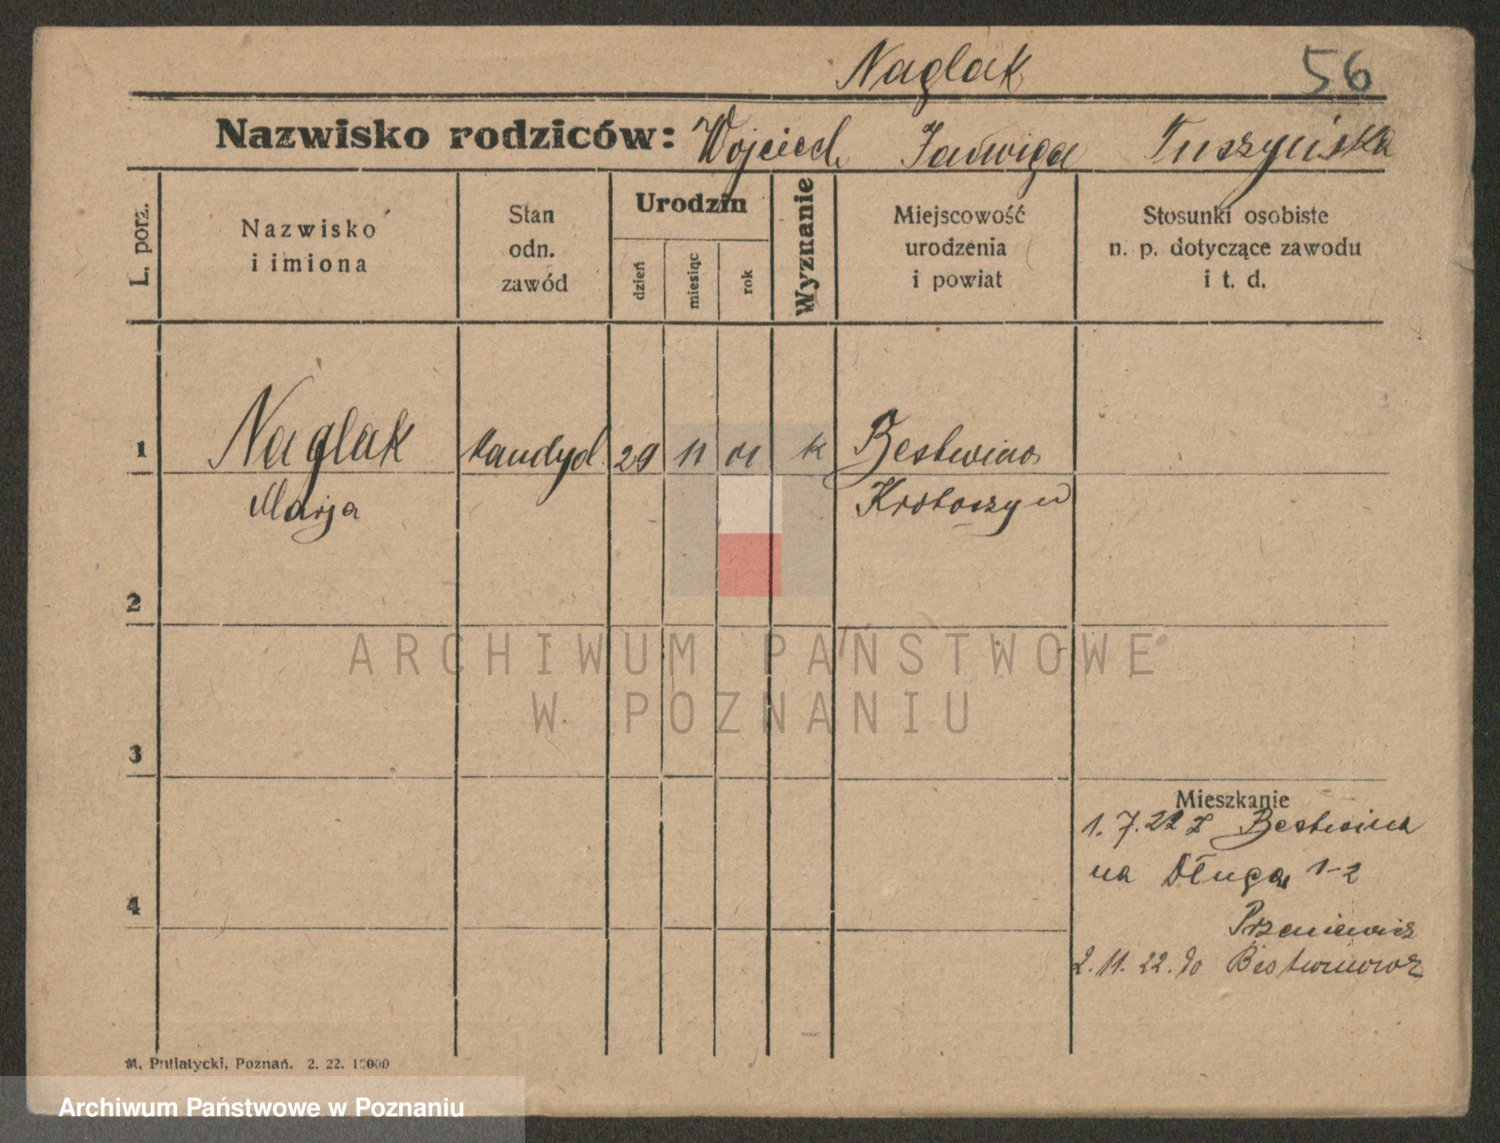 Naglak 56
Nazwisko rodziców: Wojciech Jadwiga Tuszyńska
L. porz.
Nazwisko
i imiona
Stan
odn.
zawód
Urodzin
dzień
miesiąc
rok
Wyznanie
Miejscowość
urodzenia
i powiat
Stosunki osobiste
n. p. dotyczące zawodu
i t. d.
1 Naglak kandyd 29 11 01 k Bestwina
Marja Krotoszyn
2
3
Mieszkanie
1. 7. 22 z Bestwina
na Długa 1-2
4
2. 11. 22. do
M. Putiatycki, Poznań. 2. 22. 10000
ARCHIWUM PAŃSTWOWE
W POZNANIU
Archiwum Państwowe w Poznaniu